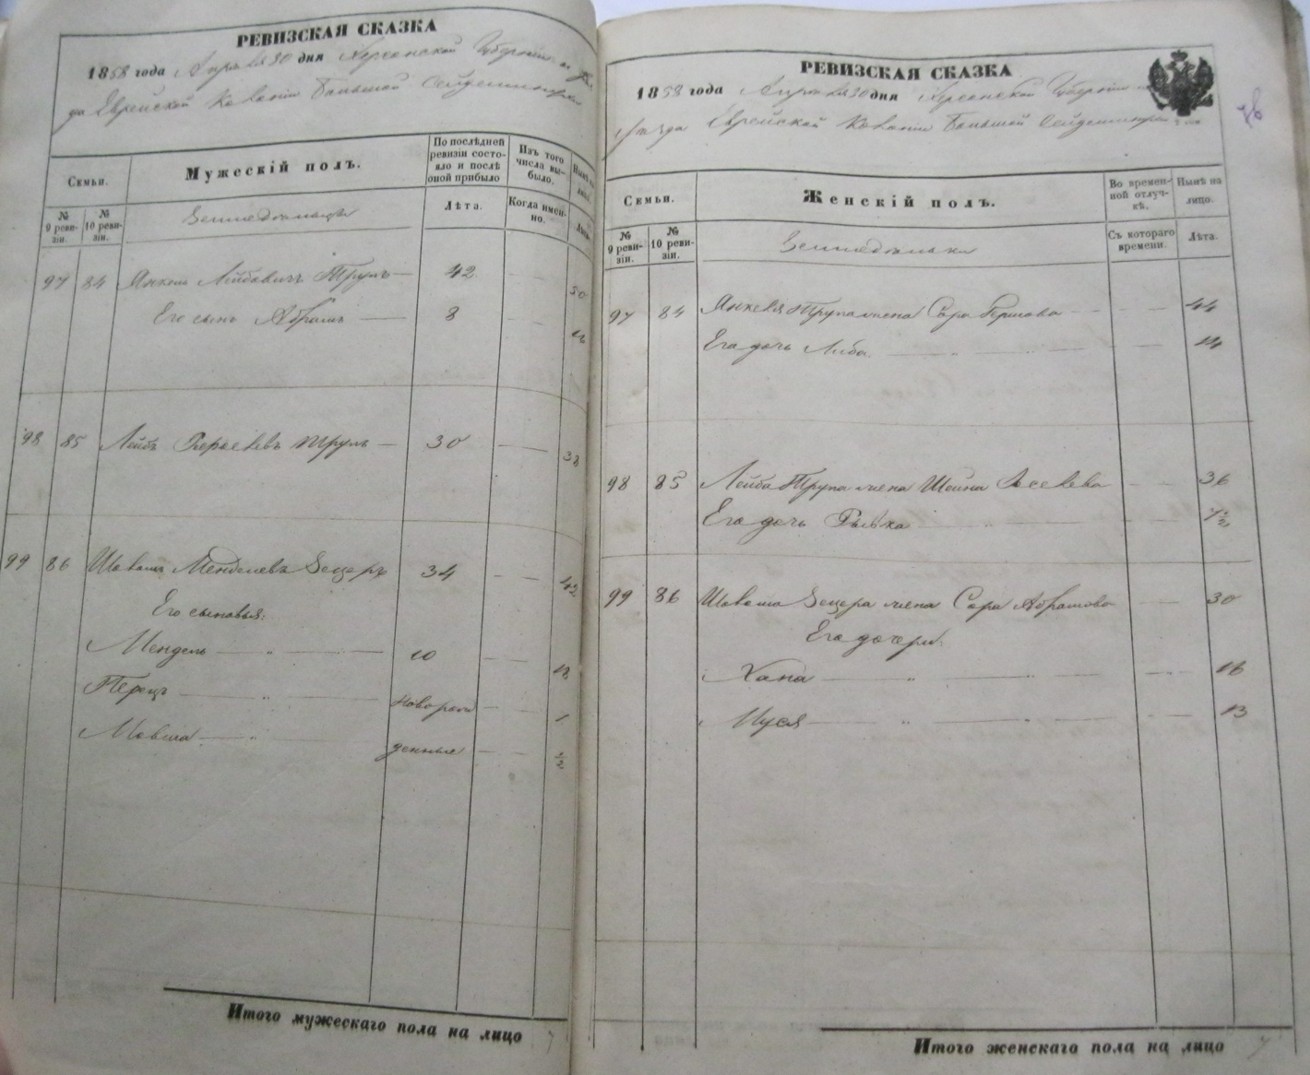 РЕВИЗСКАЯ СКАЗКА
1858 года Апреля 30 дня Херсонской Губернии
да Еврейской Колонии Большой Сейдеминухи
Семьи.
Мужескій полъ.
По послѣдней ревизіи состояло и послѣ оной прибыло
Изъ того числа выбыло.
№ 9 ревизіи.
№ 10 ревизіи.
Лѣта.
Когда именно.
97 84 Янкель Лейбовичъ Трупъ 42 50
Его сынъ Абрамъ 8
98 85 Лейба Трупъ 30 38
99 86 Менделевъ 34 42
Его сыновья:
Мендель 10 18
Перецъ новорож 1
Мовша денные ½
Итого мужескаго пола на лицо 7
РЕВИЗСКАЯ СКАЗКА
1858 года Апреля 30 дня Херсонской Губернии
уезда Еврейской Колонии Большой Сейдеминухи
Семьи.
Женскій полъ.
Во временной отлучкѣ.
Нынѣ на лицо.
№ 9 ревизіи.
№ 10 ревизіи.
Съ котораго времени.
Лѣта.
97 84 Янкеля Трупа жена Сора Гершова 44
Его дочь Либа 14
98 85 Лейба Трупа жена Шейна 36
Его дочь Рывка
99 86 жена Сора Абрамова 30
Его дочери:
Хана 16
Муся 13
Итого женскаго пола на лицо 7